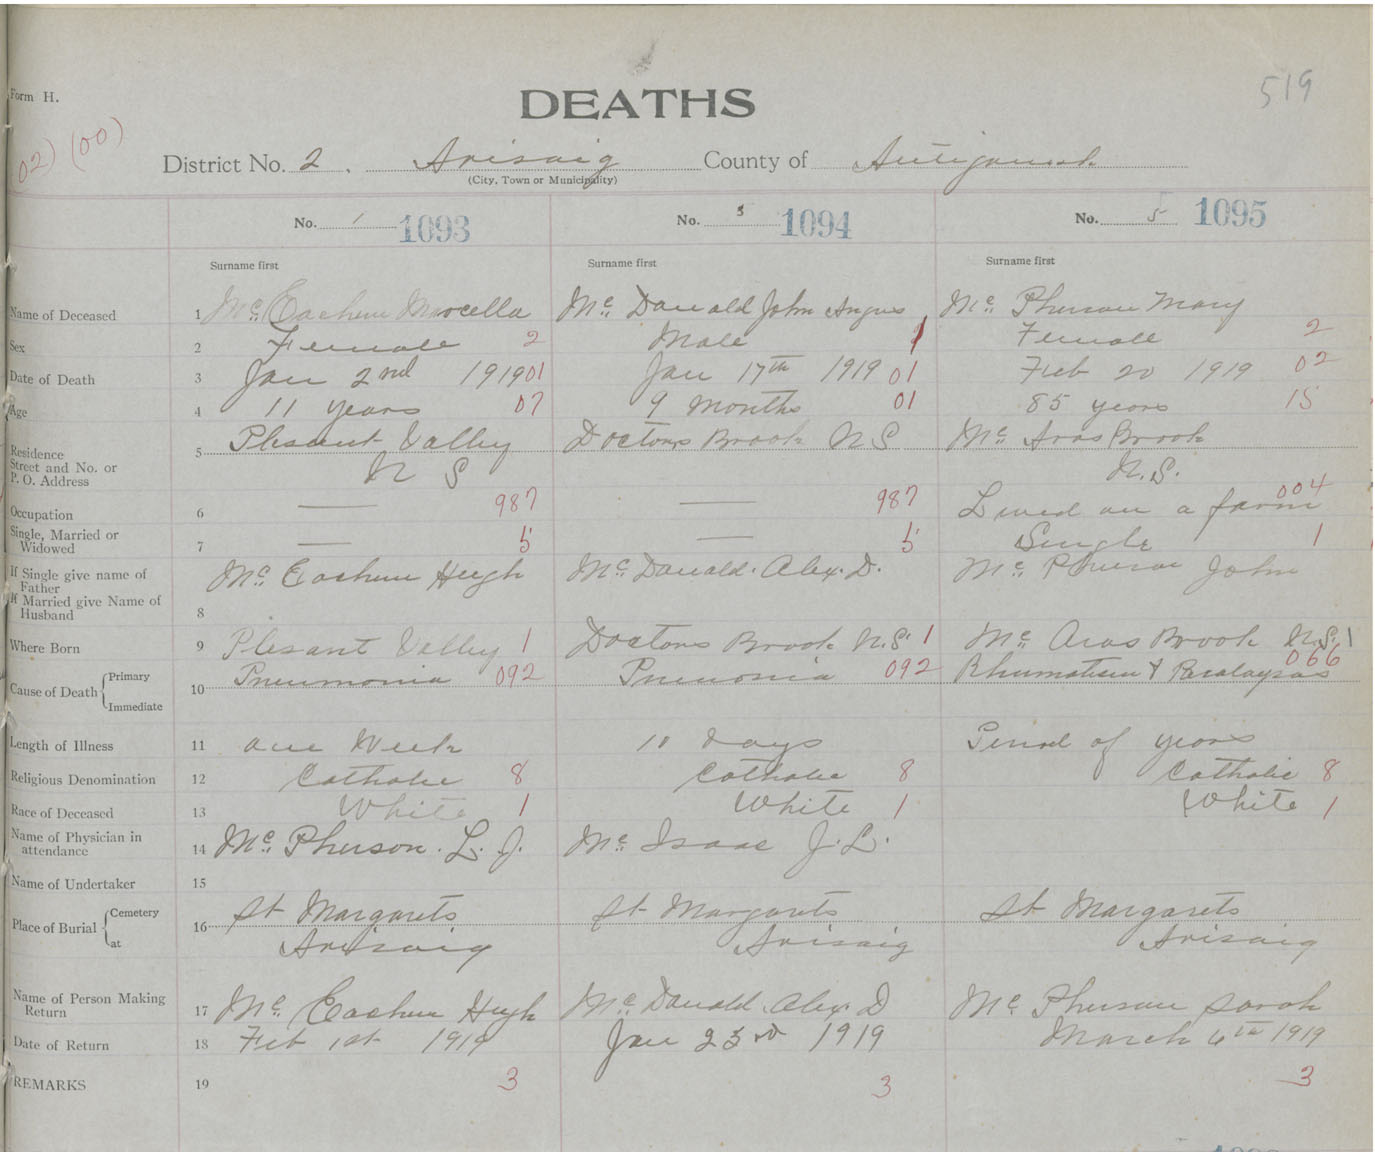 519
Form H.
DEATHS
02) (00)
District No. 2. Arisaig County of Antigonish
(City, Town or Municipality)
No. 1 1093 No. 3 1094 No. 5 1095
Surname first Surname first Surname first
Name of Deceased 1 Mc Eachern Marcella Mc Donald John Angus Mc Pherson Mary
Sex 2 Female 2 Male 1 Female 2
Date of Death 3 Jan 2nd 1919 01 Jan 17th 1919 01 Feb 20 1919 02
Age 4 11 years 07 9 months 01 85 years 15
Residence
Street and No. or
P. O. Address
5 Plesant Valley Doctors Brook N S Mc Aras Brook
N S N.S.
Occupation 6 — 987 — 987 Lived on a farm 004
Single, Married or
Widowed
7 — 5 — 5 Single 1
If Single give name of
Father
If Married give Name of
Husband
8
Mc Eachern Hugh Mc Donald. Alex. D. Mc Pherson John
Where Born 9 Plesant Valley 1 Doctors Brook N.S. 1 Mc Aras Brook N.S. 1
Cause of Death Primary
Immediate
10 Pneumonia 092 Pneuonia 092 Rhumatism & Paralaysas 066
Length of Illness 11 one Week 10 Days Period of years
Religious Denomination 12 Catholic 8 Catholic 8 Catholic 8
Race of Deceased 13 White 1 White 1 White 1
Name of Physician in
attendance
14 Mc Pherson. L. J. Mc Isaac J. L.
Name of Undertaker 15
Place of Burial Cemetery
at
16 St Margarets St Margarets St Margarets
Arisaig Arisaig Arisaig
Name of Person Making
Return
17 Mc Eachern Hugh Mc Donald. Alex. D Mc Pherson Sarah
Date of Return 18 Feb 1st 1919 Jan 23rd 1919 March 6th 1919
REMARKS 19 3 3 3